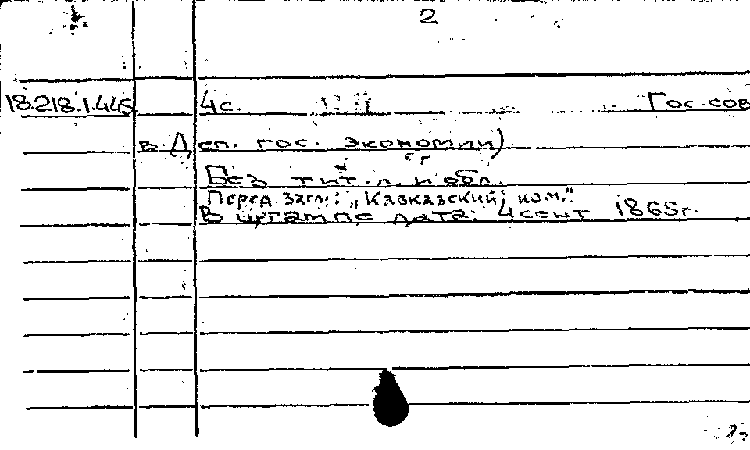 2
18.218.1.446 4 с. Гос. сов
в Деп. гос. экономии)
Без тит. л. и обл.
Перед загл.: „Кавказский ком."
В штампе дата: 4 сент 1865 г.